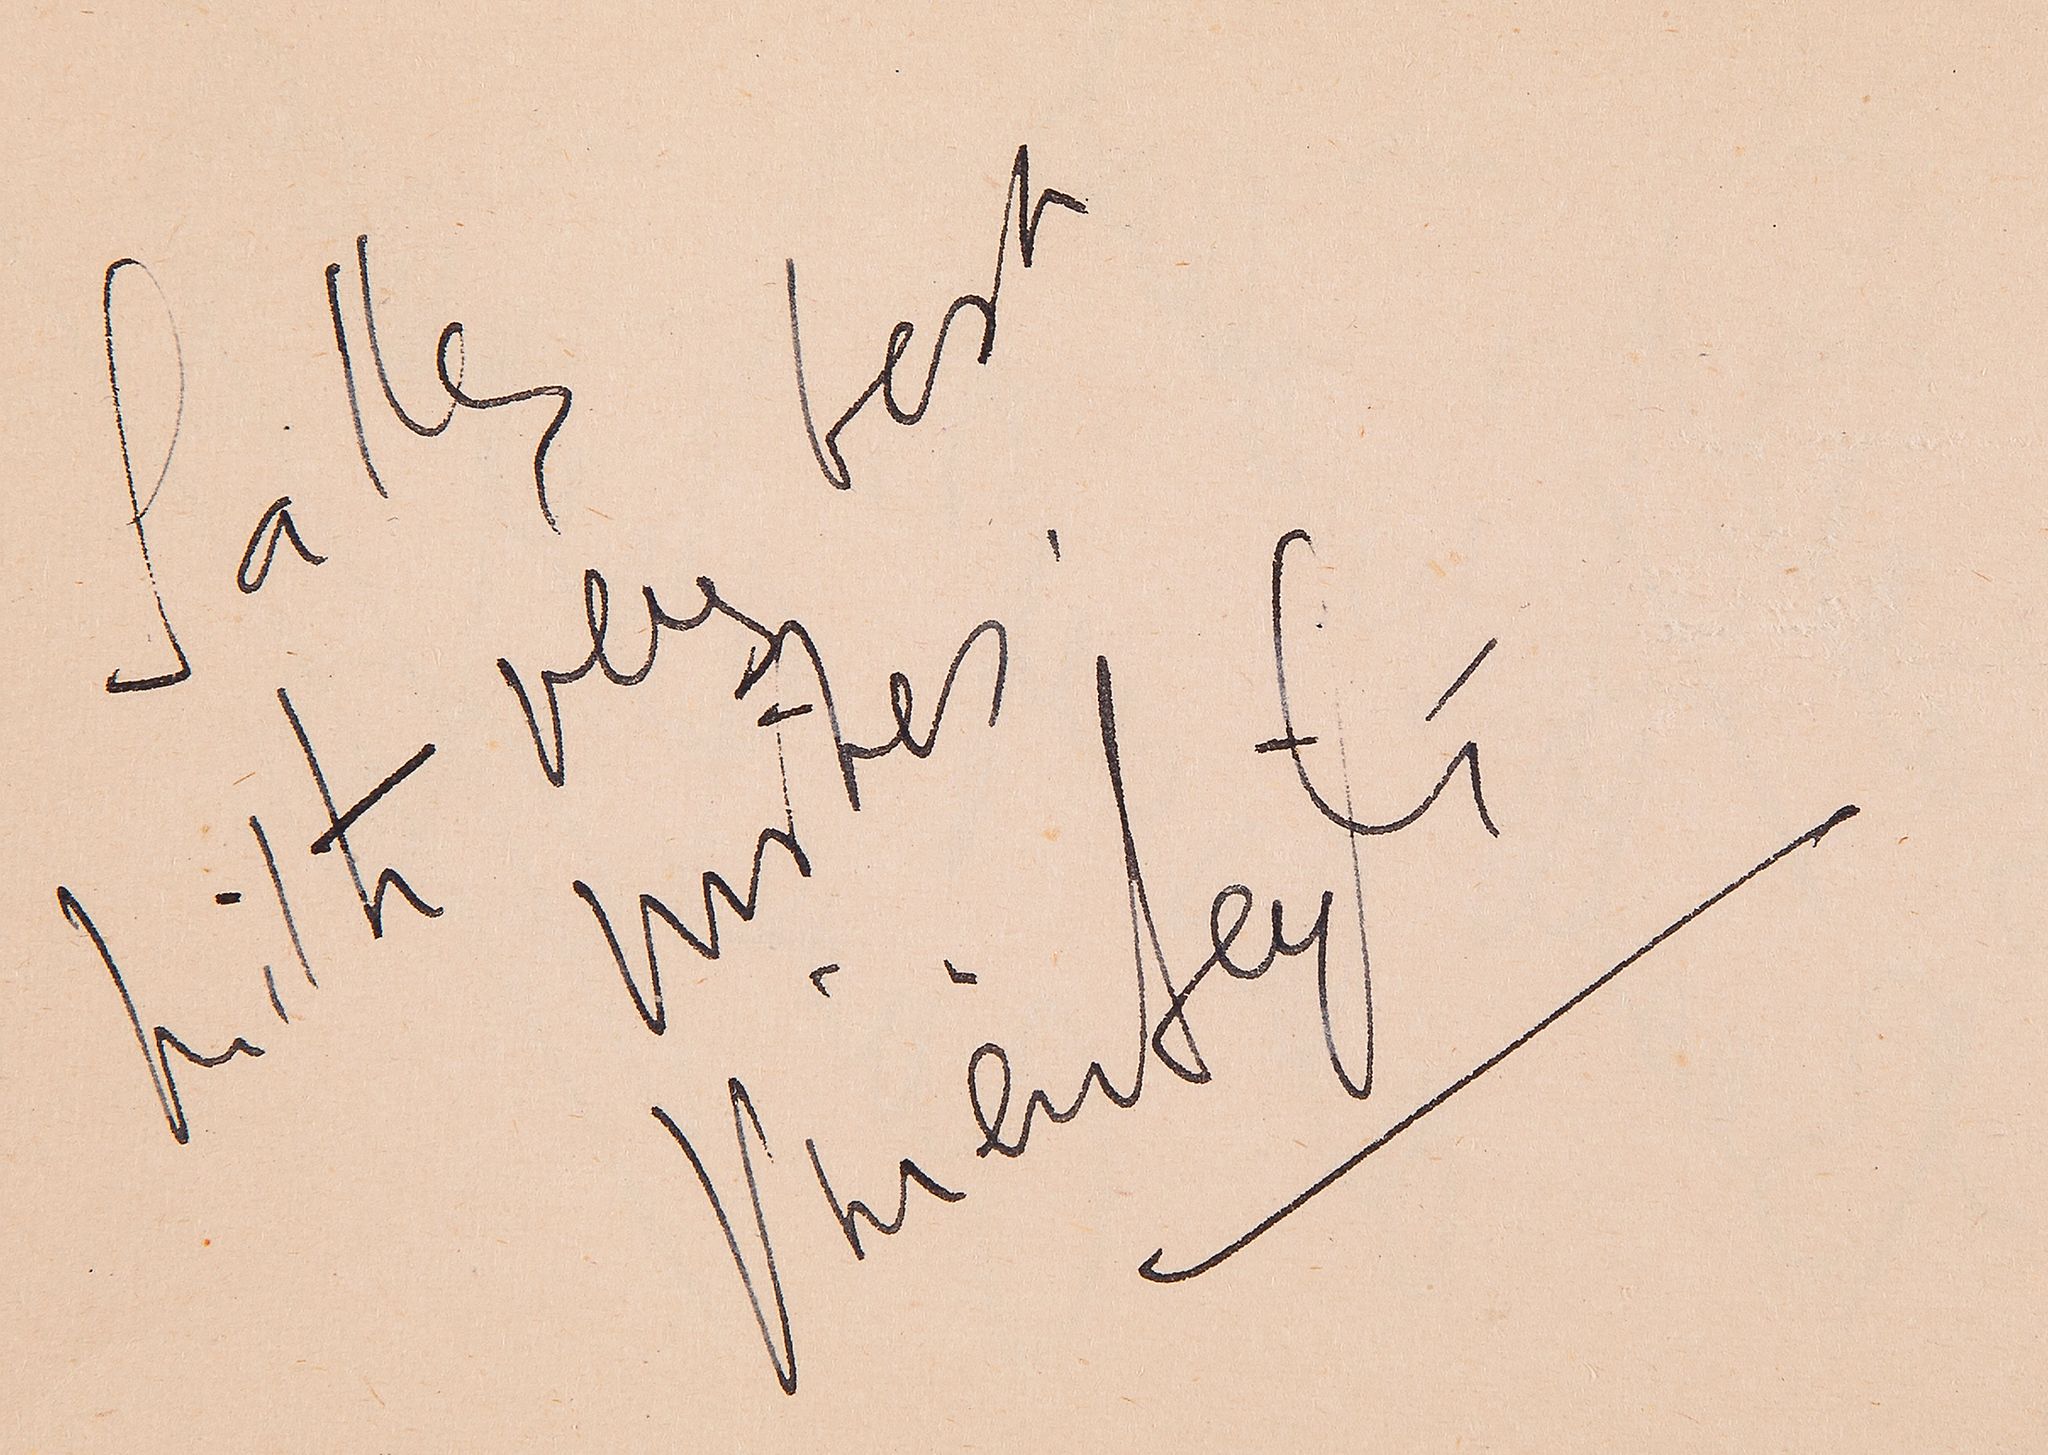 Sally
with very best
wishes
Vivien Leigh